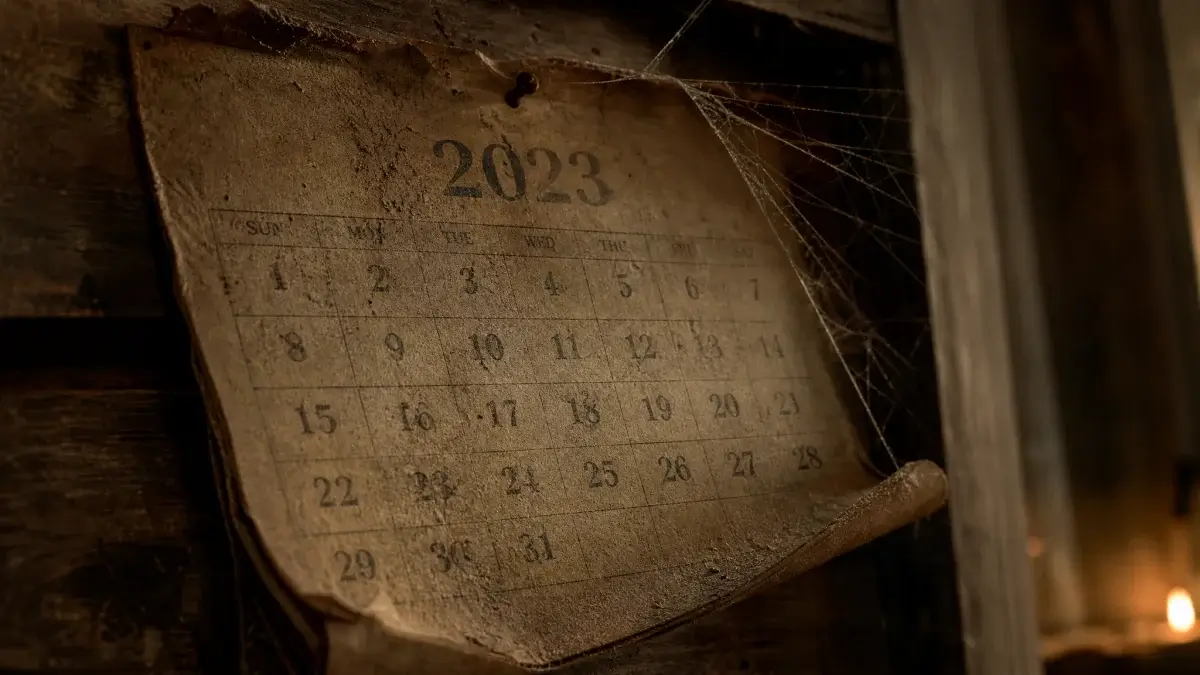 2023
SUN MON TUE WED THU FRI SAT
1 2 3 4 5 6 7
8 9 10 11 12 13 14
15 16 17 18 19 20 21
22 23 24 25 26 27 28
29 30 31